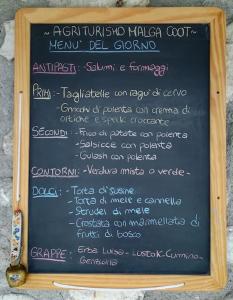 ~ AGRITURISMO MALGA COOT ~
MENU' DEL GIORNO
ANTIPASTI: - Salumi e formaggi
PRIMI: - Tagliatelle con ragù di cervo
- Gnocchi di polenta con crema di
ortiche e speck croccante
SECONDI: - Frico di patate con polenta
- Salsicce con polenta
- Gulash con polenta
CONTORNI: - Verdura mista o verde -
DOLCI: - Torta di susine
- Torta di mele e cannella
- Strudel di mele
- Crostata con marmellata di
frutti di bosco
GRAPPE: Erba Luisa - - Cumino -
Genziana